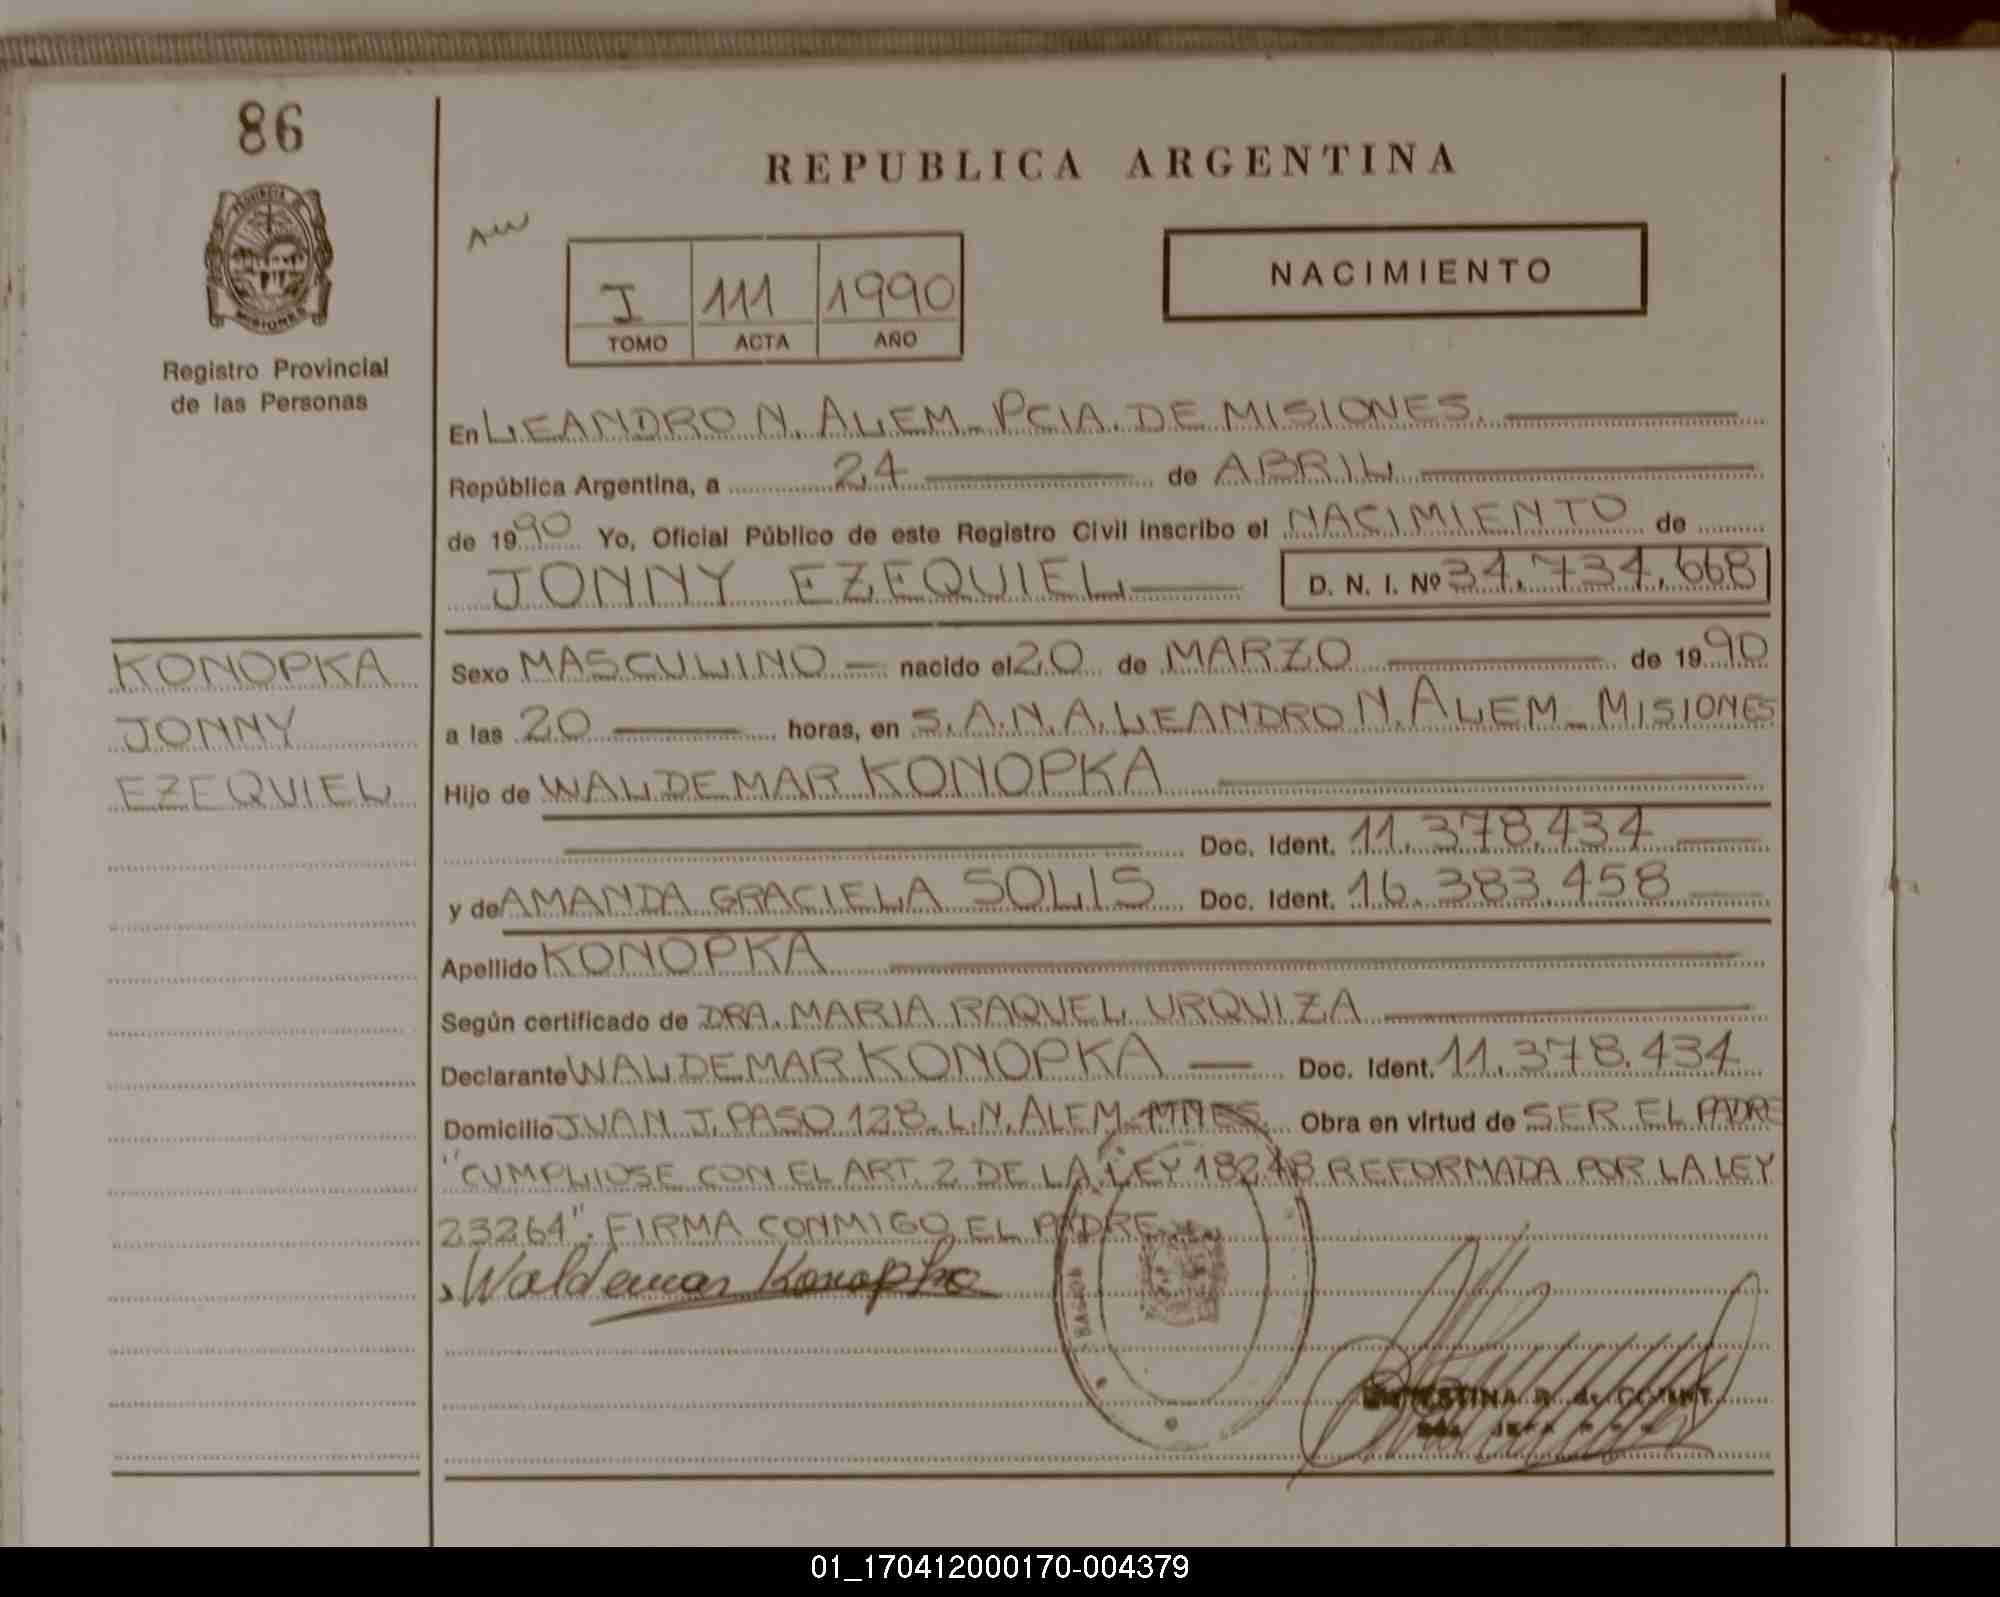 86
REPUBLICA ARGENTINA
PROVINCIA DE
MISIONES
Registro Provincial
de las Personas
I 111 1990
TOMO ACTA AÑO
NACIMIENTO
En LEANDRO N. ALEM - PCIA. DE MISIONES.
República Argentina, a 24 de ABRIL
de 1990 Yo, Oficial Público de este Registro Civil inscribo el NACIMIENTO de
JONNY EZEQUIEL D. N. I. Nº 34.734.668
KONOPKA
JONNY
EZEQUIEL
Sexo MASCULINO - nacido el 20 de MARZO de 1990
a las 20 horas, en S.A.N.A. LEANDRO N. ALEM - MISIONES
Hijo de WALDEMAR KONOPKA
Doc. Ident. 11.378.434
y de AMANDA GRACIELA SOLIS Doc. Ident. 16.383.458
Apellido KONOPKA
Según certificado de DRA. MARIA RAQUEL URQUIZA
Declarante WALDEMAR KONOPKA - Doc. Ident. 11.378.434
Domicilio JUAN J. PASO 128 - L.N. ALEM - MNES. Obra en virtud de SER EL PADRE
"CUMPLIOSE CON EL ART. 2 DE LA LEY 18248 REFORMADA POR LA LEY
23264". FIRMA CONMIGO EL PADRE
Waldemar Konopka
JEFA
01_170412000170-004379